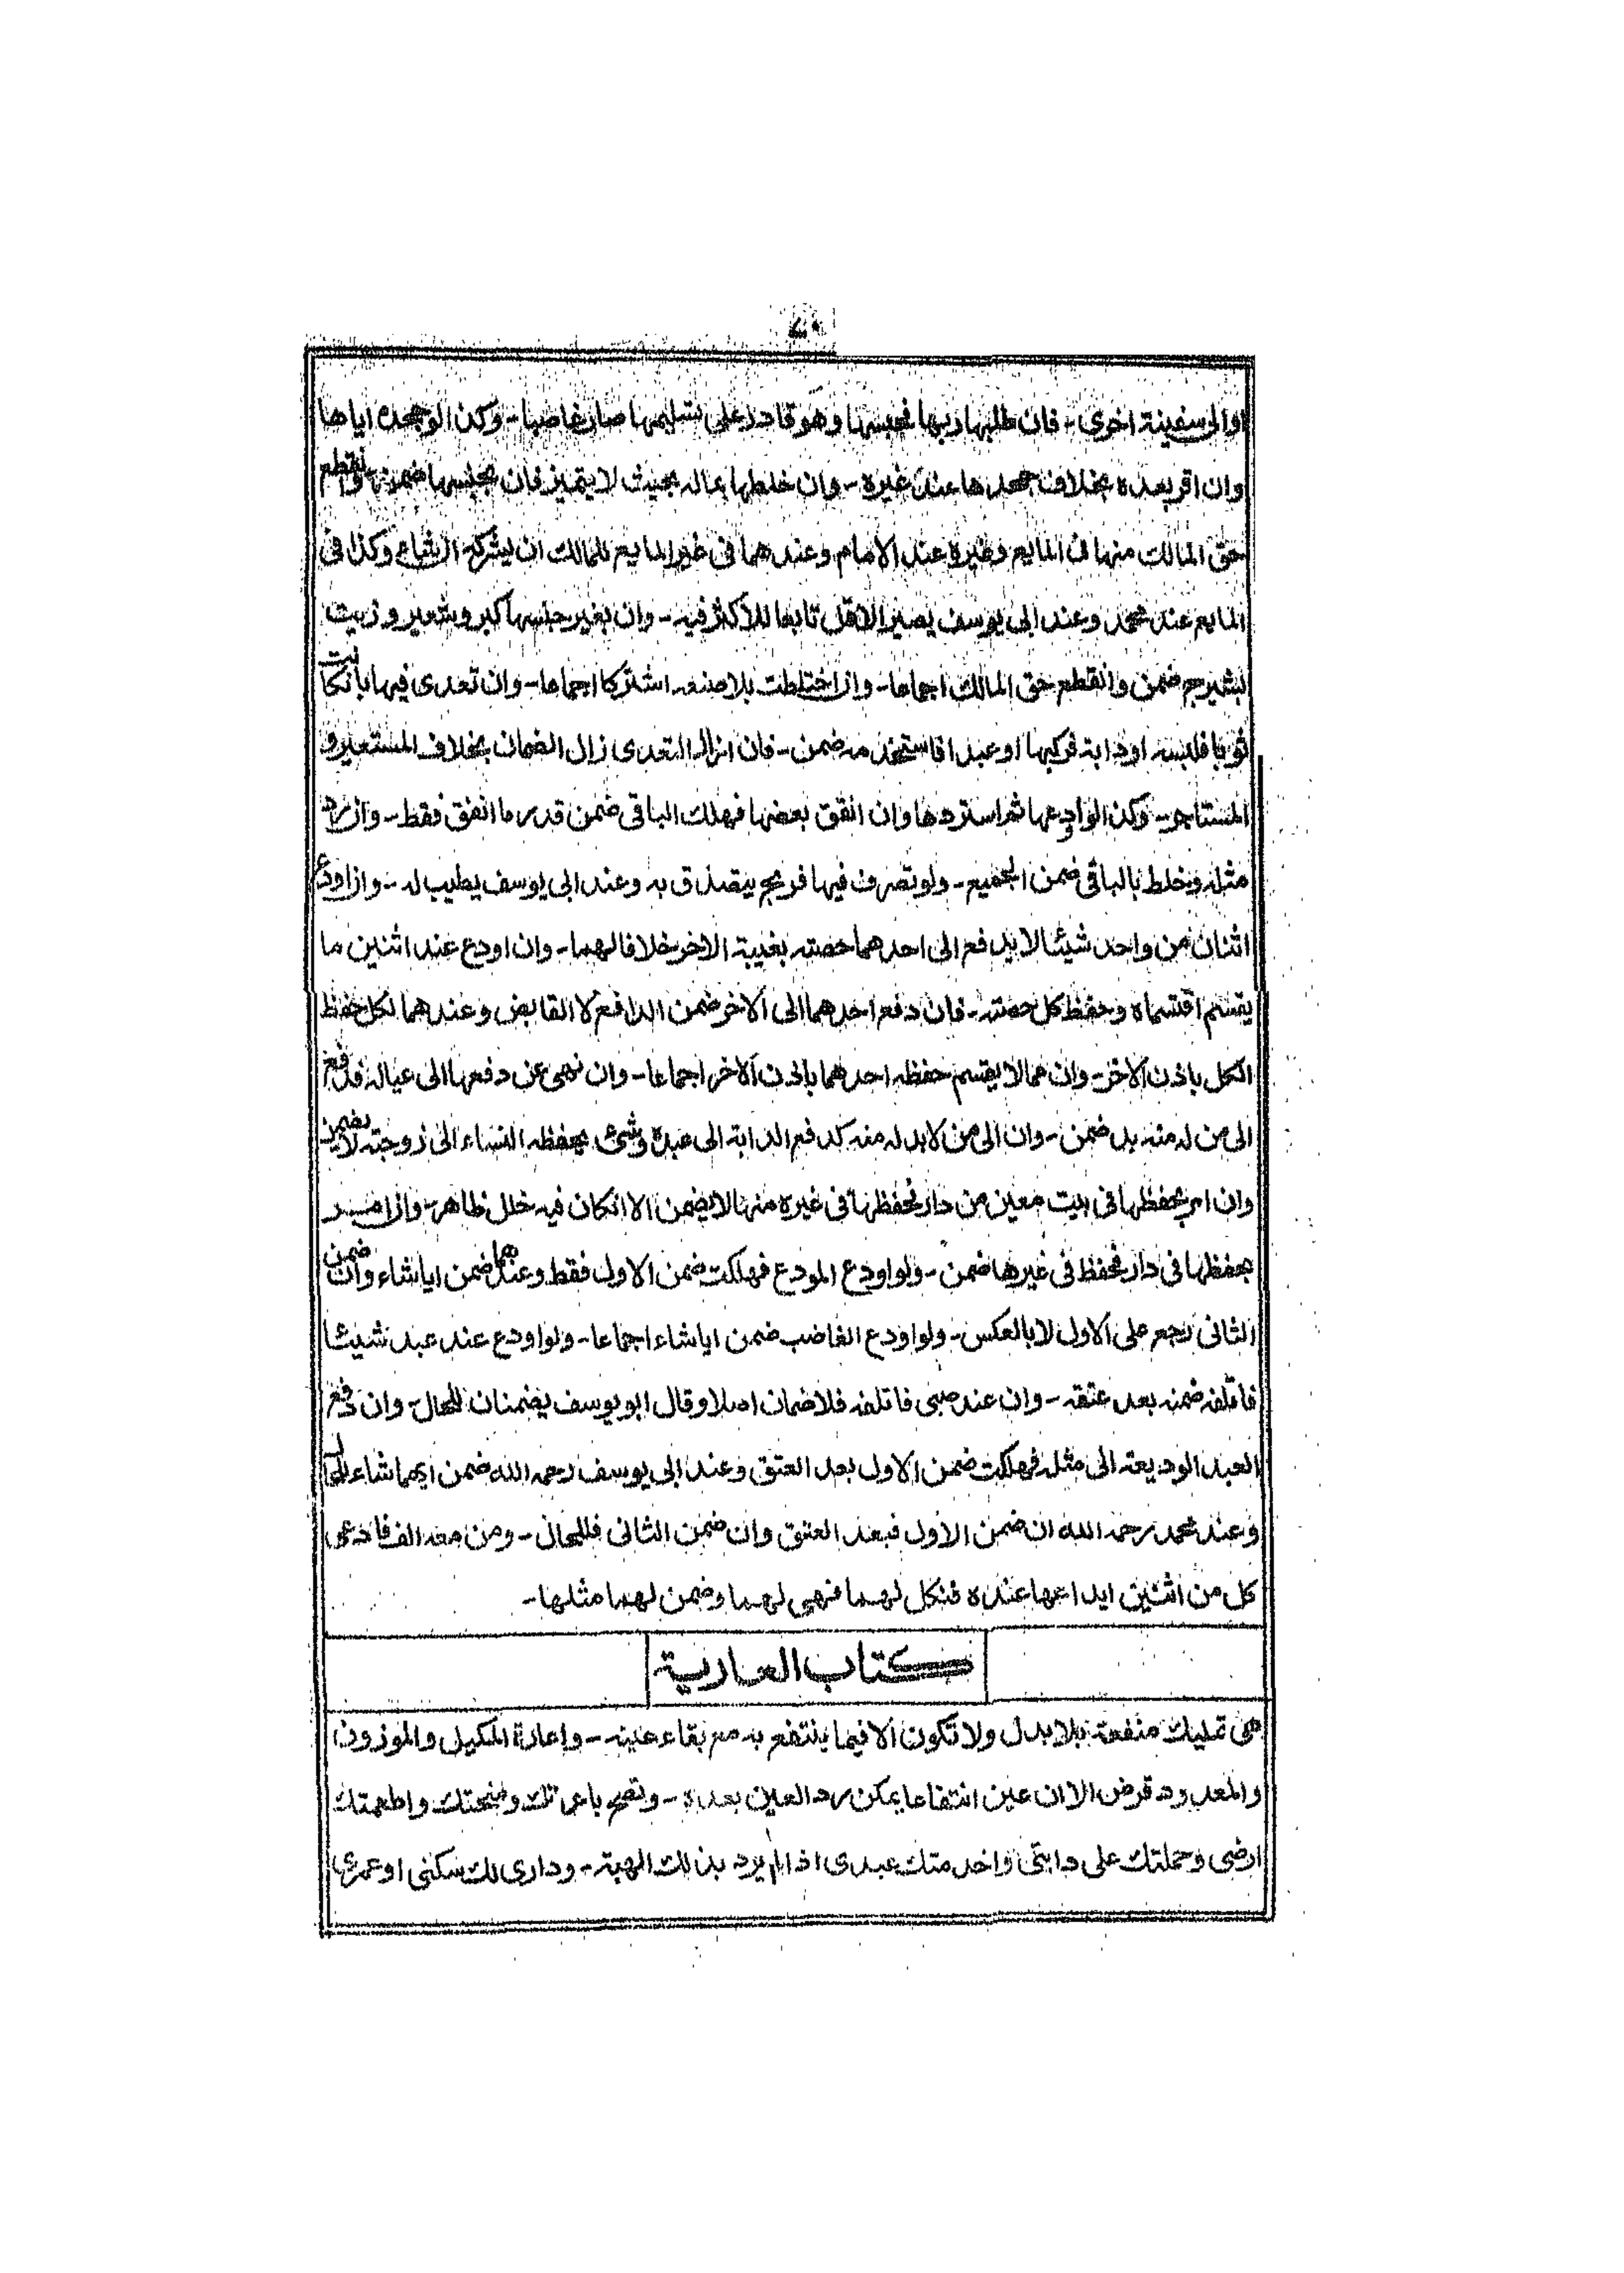 ٧٠
او الى سفينة اخرى - فان طلبها ربها فحبسها وهو قادر على تسليمها صار غاصبا - وكذا لو جحده اياها
وان اقر بعده بخلاف جحدها عند غيره - وان خلطها بماله بحيث لا يتميز فان بجنسها ضمن وانقطع
حق المالك منها فى المايع وغيره عند الامام وعندهما فى غير المايع للمالك ان يشركه ان شاء وكذا فى
المايع عند محمد وعند ابى يوسف يصير الاقل تابعا للاكثر فيه - وان بغير جنسها كبر وشعير وزيت
بشيرج ضمن وانقطع حق المالك اجماعا - وان اختلطت بلا صنعه اشتركا اجماعا - وان تعدى فيها بان كانت
ثوبا فلبسه او دابة فركبها او عبدا فاستخدمه ضمن - فان ازال التعدى زال الضمان بخلاف المستعير و
المستاجر - وكذا لو اودعها ثم استردها وان انفق بعضها فهلك الباقى ضمن قدر ما انفق فقط - وان رد
مثله وخلط بالباقى ضمن الجميع - ولو تصرف فيها فربح يتصدق به وعند ابى يوسف يطيب له - وان اودع
اثنان من واحد شيئا لا يدفع الى احدهما حصته بغيبة الاخر خلافا لهما - وان اودع عند اثنين ما
يقسم اقتسماه وحفظ كل حصته - فان دفع احدهما الى الاخر ضمن الدافع لا القابض وعندهما لكل حفظ
الكل باذن الاخر - وان مما لا يقسم حفظه احدهما باذن الاخر اجماعا - وان نهى عن دفعها الى عياله فدفع
الى من له منه بد ضمن - وان الى من لا بد له منه كدفع الدابة الى عبده وشئ يحفظه النساء الى زوجته لا يضمن
وان امر بحفظها فى بيت معين من دار فحفظها فى غيره منها لا يضمن الا ان كان فيه خلل ظاهر - وان امر
بحفظها فى دار فحفظ فى غيرها ضمن - ولو اودع المودع فهلكت ضمن الاول فقط وعندهما ضمن ايا شاء وان ضمن
الثانى رجع على الاول لا بالعكس - ولو اودع الغاصب ضمن ايا شاء اجماعا - ولو اودع عند عبد شيئا
فاتلفه ضمنه بعد عتقه - وان عند صبى فاتلفه فلا ضمان اصلا وقال ابو يوسف يضمنان للحال - وان دفع
العبد الوديعة الى مثله فهلكت ضمن الاول بعد العتق وعند ابى يوسف رحمه الله ضمن ايهما شاء للحال
وعند محمد رحمه الله ان ضمن الاول فبعد العتق وان ضمن الثانى فللحال - ومن معه الف فادعى
كل من اثنين ايداعها عنده فنكل لهما فهى لهما وضمن لهما مثلها -
كتاب العارية
هى تمليك منفعة بلا بدل ولا تكون الا فيما ينتفع به مع بقاء عينه - واعارة المكيل والموزون
والمعدود قرض الا ان عين انتفاعا يمكن رد العين بعده - وتصح باعرتك ومنحتك واطعمتك
ارضى وحملتك على دابتى واخدمتك عبدى اذا لم يرد بذلك الهبة - ودارى لك سكنى او عمرى